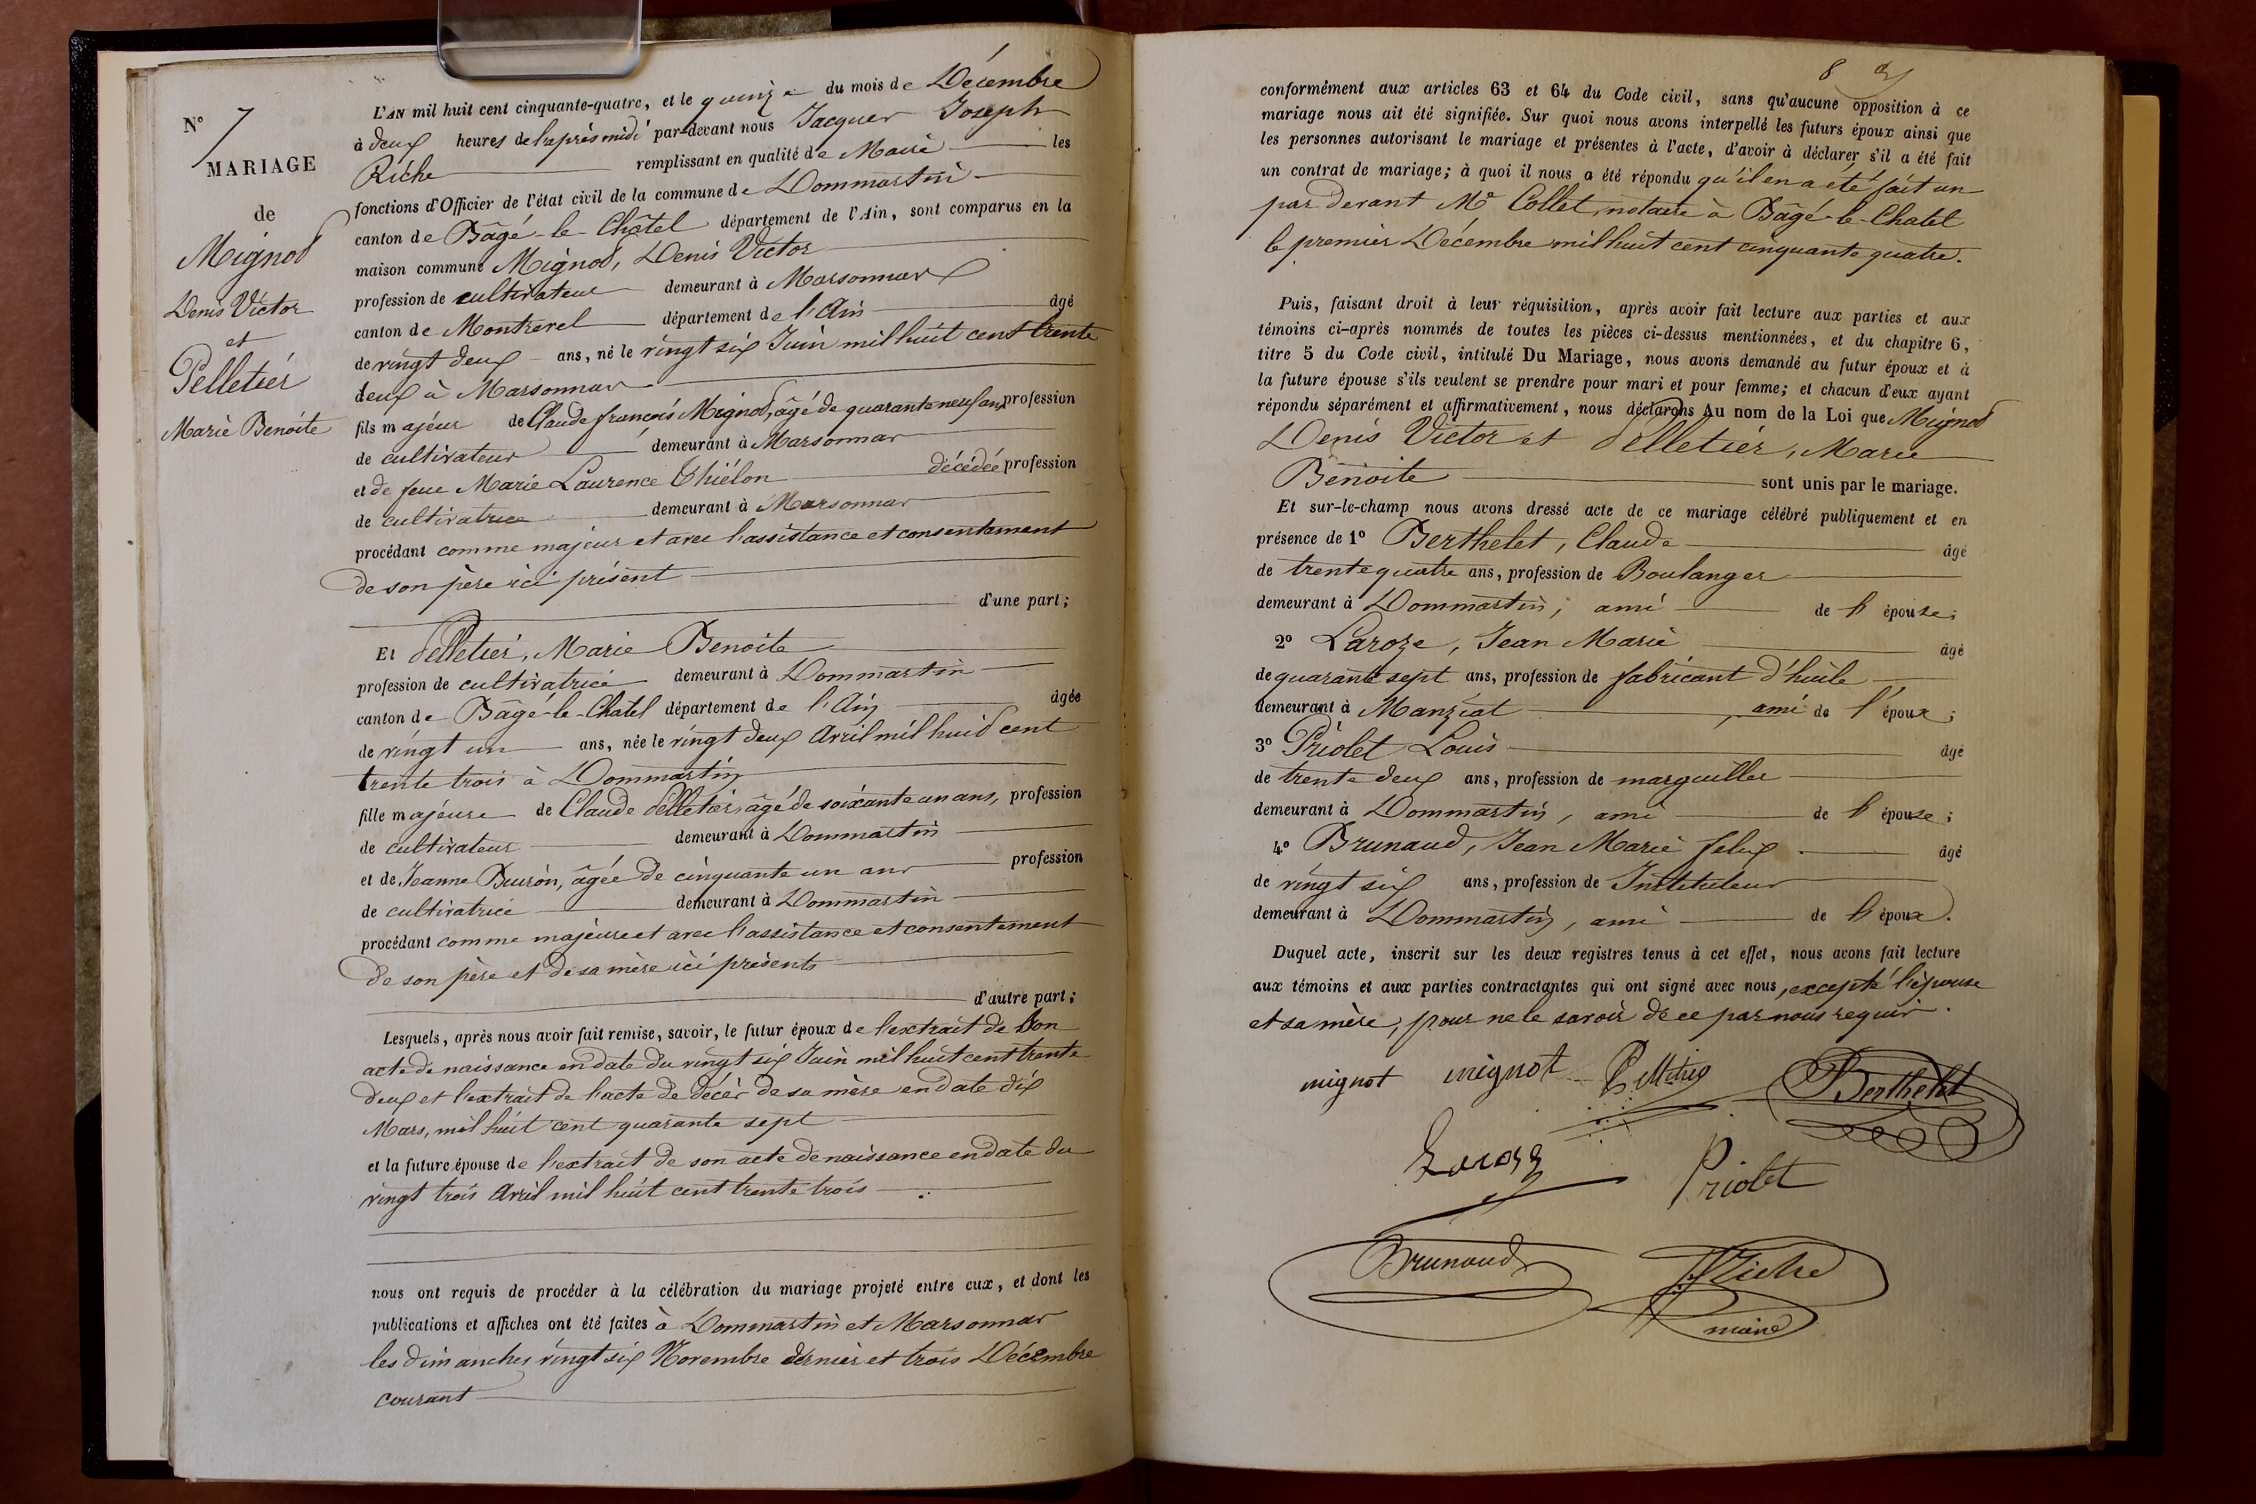 N° 7
MARIAGE
de
Mignot
Denis Victor
et
Pelletier
Marie Benoite
L'AN mil huit cent cinquante-quatre, et le quinze du mois de Décembre
à deux heures de l'après midi par-devant nous Jacques Joseph
Riche remplissant en qualité de Maire les
fonctions d'Officier de l'état civil de la commune de Dommartin
canton de Bâgé-le-Châtel département de l'Ain, sont comparus en la
maison commune Mignot, Denis Victor
profession de cultivateur demeurant à Marsonnas
canton de Montrevel département de l'Ain âgé
de vingt deux ans, né le vingt six Juin mil huit cent trente
deux à Marsonnas
fils majeur de Claude françois Mignot, âgé de quarante neuf ans profession
de cultivateur demeurant à Marsonnas
et de feue Marie Laurence Thiélon décédée profession
de cultivatrice demeurant à Marsonnas
procédant comme majeur et avec l'assistance et consentement
de son père ici présent
d'une part;
Et Pelletier, Marie Benoite
profession de cultivatrice demeurant à Dommartin
canton de Bâgé-le-Chatel département de l'Ain âgée
de vingt un ans, née le vingt deux Avril mil huit cent
trente trois à Dommartin
fille majeure de Claude Pelletier, âgé de soixante un ans, profession
de cultivateur demeurant à Dommartin
et de Jeanne Buiron, âgée de cinquante un ans profession
de cultivatrice demeurant à Dommartin
procédant comme majeure et avec l'assistance et consentement
de son père et de sa mère ici présents
d'autre part;
Lesquels, après nous avoir fait remise, savoir, le futur époux de l'extrait de son
acte de naissance en date du vingt six Juin mil huit cent trente
deux et l'extrait de l'acte de décès de sa mère en date dix
Mars, mil huit cent quarante sept
et la future épouse de l'extrait de son acte de naissance en date du
vingt trois Avril mil huit cent trente trois
nous ont requis de procéder à la célébration du mariage projeté entre eux, et dont les
publications et affiches ont été faites à Dommartin et Marsonnas
les dimanches vingt six Novembre dernier et trois Décembre
courant
8
conformément aux articles 63 et 64 du Code civil, sans qu'aucune opposition à ce
mariage nous ait été signifiée. Sur quoi nous avons interpellé les futurs époux ainsi que
les personnes autorisant le mariage et présentes à l'acte, d'avoir à déclarer s'il a été fait
un contrat de mariage; à quoi il nous a été répondu qu'il en a été fait un
par devant Me Collet, notaire à Bâgé-le-Chatel
le premier Décembre mil huit cent cinquante quatre.
Puis, faisant droit à leur réquisition, après avoir fait lecture aux parties et aux
témoins ci-après nommés de toutes les pièces ci-dessus mentionnées, et du chapitre 6,
titre 5 du Code civil, intitulé Du Mariage, nous avons demandé au futur époux et à
la future épouse s'ils veulent se prendre pour mari et pour femme; et chacun d'eux ayant
répondu séparément et affirmativement, nous déclarons Au nom de la Loi que Mignot
Denis Victor et Pelletier, Marie
Benoite sont unis par le mariage.
Et sur-le-champ nous avons dressé acte de ce mariage célébré publiquement et en
présence de 1° Berthelet, Claude âgé
de trente quatre ans, profession de Boulanger
demeurant à Dommartin; ami de l'épouse;
2° Laroze, Jean Marie âgé
de quarante sept ans, profession de fabricant d'huile
demeurant à Manziat, ami de l'époux;
3° Priolet Louis âgé
de trente deux ans, profession de marguiller
demeurant à Dommartin, ami de l'épouse;
4° Brunaud, Jean Marie felix âgé
de vingt six ans, profession de Instituteur
demeurant à Dommartin, ami de l'époux.
Duquel acte, inscrit sur les deux registres tenus à cet effet, nous avons fait lecture
aux témoins et aux parties contractantes qui ont signé avec nous, excepté l'épouse
et sa mère, pour ne le savoir de ce par nous requis.
mignot mignot Pelletier Berthelet
Laroze Priolet
Brunaud Riche
maire